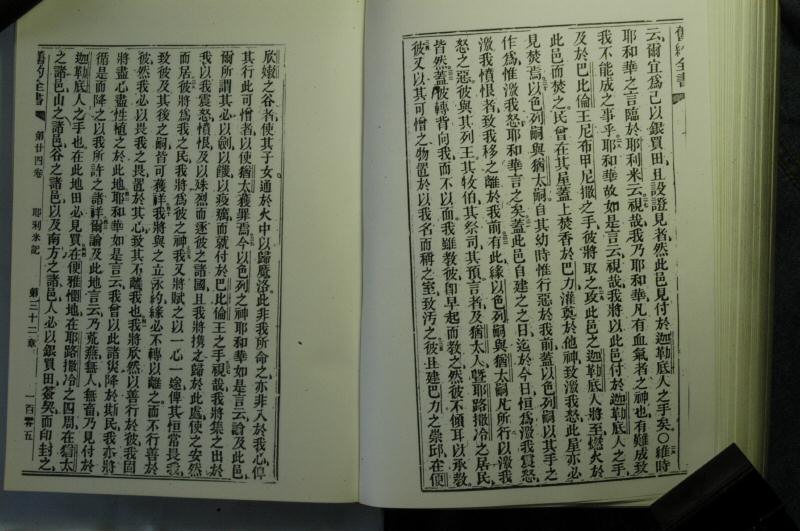 舊約全書
云爾宜爲己以銀買田且設證見者然此邑見付於迦勒底人之手矣○維時
耶和華之言臨於耶利米云視哉我乃耶和華凡有血氣者之神也有難成致
我不能成之事乎耶和華故如是言云視哉我將以此邑付於迦勒底人之手
及於巴比倫王尼布甲尼撒之手彼將取之攻此邑之迦勒底人將至燃火於
此邑而焚之民曾在其屋蓋上焚香於巴力灌奠於他神致激我怒此屋亦必
見焚焉以色列嗣與猶太嗣自其幼時惟行惡於我前蓋以色列嗣以其手之
作爲惟激我怒耶和華言之矣蓋此邑自建之之日迄於今日恒爲激我震怒
激我憤恨者致我移之離於我前有此緣以色列嗣與猶太嗣凡所行以激我
怒之惡彼與其列王其牧伯其祭司其預言者及猶太人曁耶路撒冷之居民
皆然蓋彼轉背向我而不以面我雖教彼卽早起而教之然彼不傾耳以承教
彼又以其可憎之物置於以我名而稱之室致汚之彼且建巴力之崇邱在便
欣嫩之谷者使其子女通於火中以歸魔洛此非我所命之亦非入於我心俾
其行此可憎者以使猶太獲罪焉今以色列之神耶和華如是言云論及此邑
爾所謂其必以劍以饑以疫癘而就付於巴比倫王之手視哉我將集之出於
我以我震怒憤恨及以殊烈而逐彼之諸國且我將携之歸於此處使之安然
而居彼將爲我之民我將爲彼之神我又將賦之以一心一途俾其恒常畏我
致彼及其後之嗣皆可獲祥我將與之立永約緣必不轉以離之而不行善於
彼然我必以畏我之畏置於其心致其不離我也我將欣然以善行於彼我固
將盡心盡性植之於此地耶和華如是言云我曾以此諸災降於斯民我亦將
循是而降之以我所許之諸祥爾論及此地言云乃荒蕪無人無畜乃見付於
迦勒底人之手也在此地田必見買在便雅憫地在耶路撒冷之四周在猶太
之諸邑山之諸邑谷之諸邑以及南方之諸邑人必以銀買田簽契而印封之
舊約全書 第廿四卷 耶利米記 第三十二章 一百零五